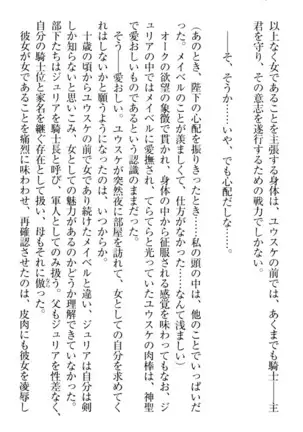 以上なく女であることを主張する身体は、ユウスケの前では、あくまでも騎士――主
君を守り、その意志を遂行するための戦力でしかない。
――そ、そうか……いや、でも心配だしな……。
(あのとき、陛下の心配を振りきったとき……私の頭の中は、他のことでいっぱいだ
った。メイベルのことが羨ましくて、仕方がなかった……なんて浅ましい)
オークの欲望の象徴で貫かれ、身体の中から征服される感覚を味わってもなお、ジ
ュリアの中ではメイベルに愛撫され、てらてらと光っていたユウスケの肉棒は、神聖
で愛おしいものであるという認識のままだった。
そう――愛おしい。ユウスケが突然夜に部屋を訪れて、女としての自分を求めてく
れはしないかと願うようになったのは、いつからか。
十歳の頃からユウスケの前で女であり続けたメイベルと違い、ジュリアは自分は剣
しか知らないと思いこみ、女としての魅力があるのかどうか理解できていなかった。
部下たちはジュリアを騎士長と呼び、軍人としてのみ扱う。父もジュリアを性差なく、
自分の騎士位と家名を継ぐ存在として扱い、母もそれに倣った。
彼女が女であることを痛烈に味わわせ、再確認させたのは、皮肉にも彼女を凌辱し